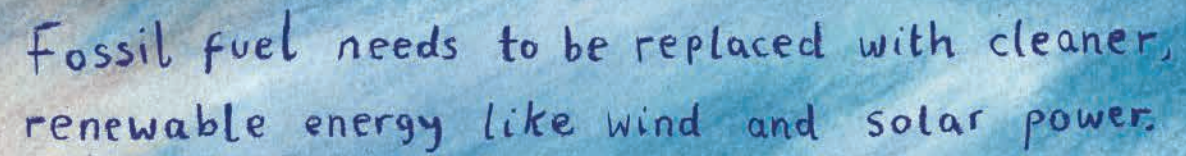 Fossil fuel needs to be replaced with cleaner,
renewable energy like wind and solar power.